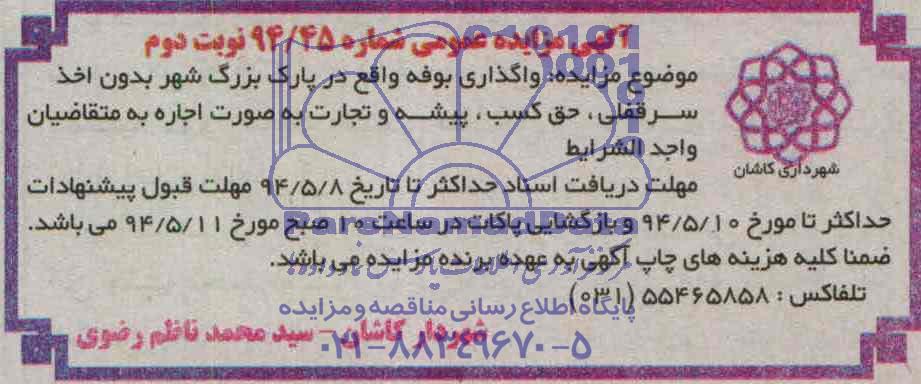 آگهی مزایده عمومی شماره ۹۴/۴۵ نوبت دوم
موضوع مزایده: واگذاری بوفه واقع در پارک بزرگ شهر بدون اخذ
سرقفلی، حق کسب، پیشه و تجارت به صورت اجاره به متقاضیان
واجد الشرایط
شهرداری کاشان
مهلت دریافت اسناد حداکثر تا تاریخ ۹۴/۵/۸ مهلت قبول پیشنهادات
حداکثر تا مورخ ۹۴/۵/۱۰ و بازگشایی پاکات در ساعت ۱۰ صبح مورخ ۹۴/۵/۱۱ می باشد.
ضمنا کلیه هزینه های چاپ آگهی به عهده برنده مزایده می باشد.
تلفاکس: ۵۵۴۶۵۸۵۸ (۰۳۱)
پایگاه اطلاع رسانی مناقصه و مزایده
شهردار کاشان - سید محمد ناظم رضوی
۰۲۱-۸۸۳۴۹۶۷۰-۵